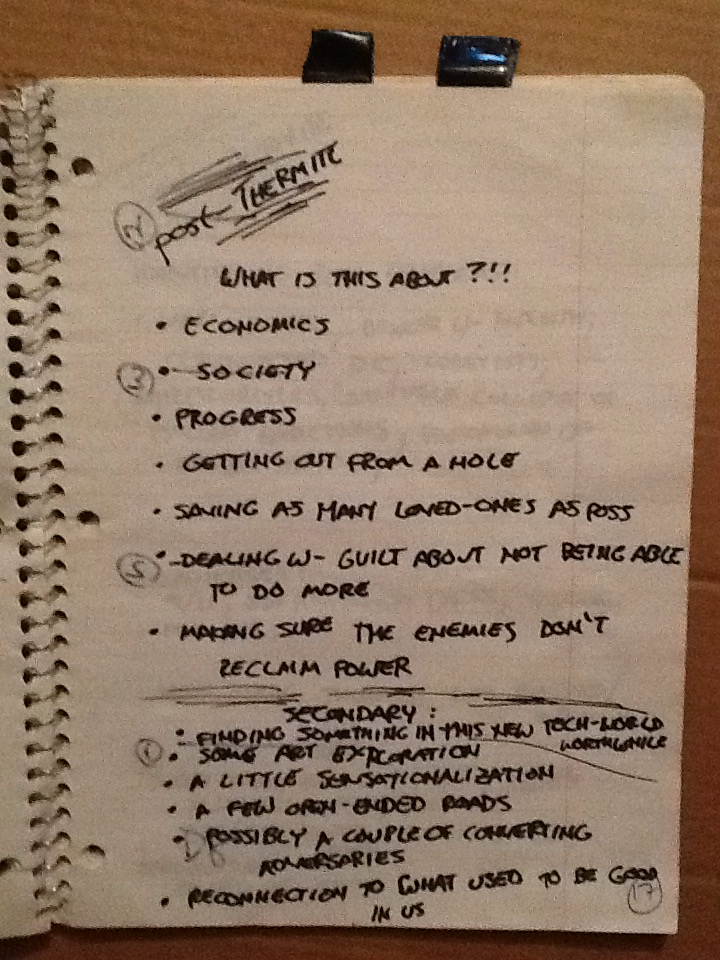 post-THERMITE
WHAT IS THIS ABOUT?!!
• ECONOMICS
• SOCIETY
• PROGRESS
• GETTING OUT FROM A HOLE
• SAVING AS MANY LOVED-ONES AS POSS
• DEALING W- GUILT ABOUT NOT BEING ABLE
TO DO MORE
• MAKING SURE THE ENEMIES DON'T
RECLAIM POWER
SECONDARY:
• FINDING SOMETHING IN THIS NEW TECH-WORLD
WORTHWHILE
• SOME ART EXPLORATION
• A LITTLE SENSATIONALIZATION
• A FEW OPEN-ENDED ROADS
• POSSIBLY A COUPLE OF CONVERTING
ADVERSARIES
• RECONNECTION TO WHAT USED TO BE GOOD
IN US
17